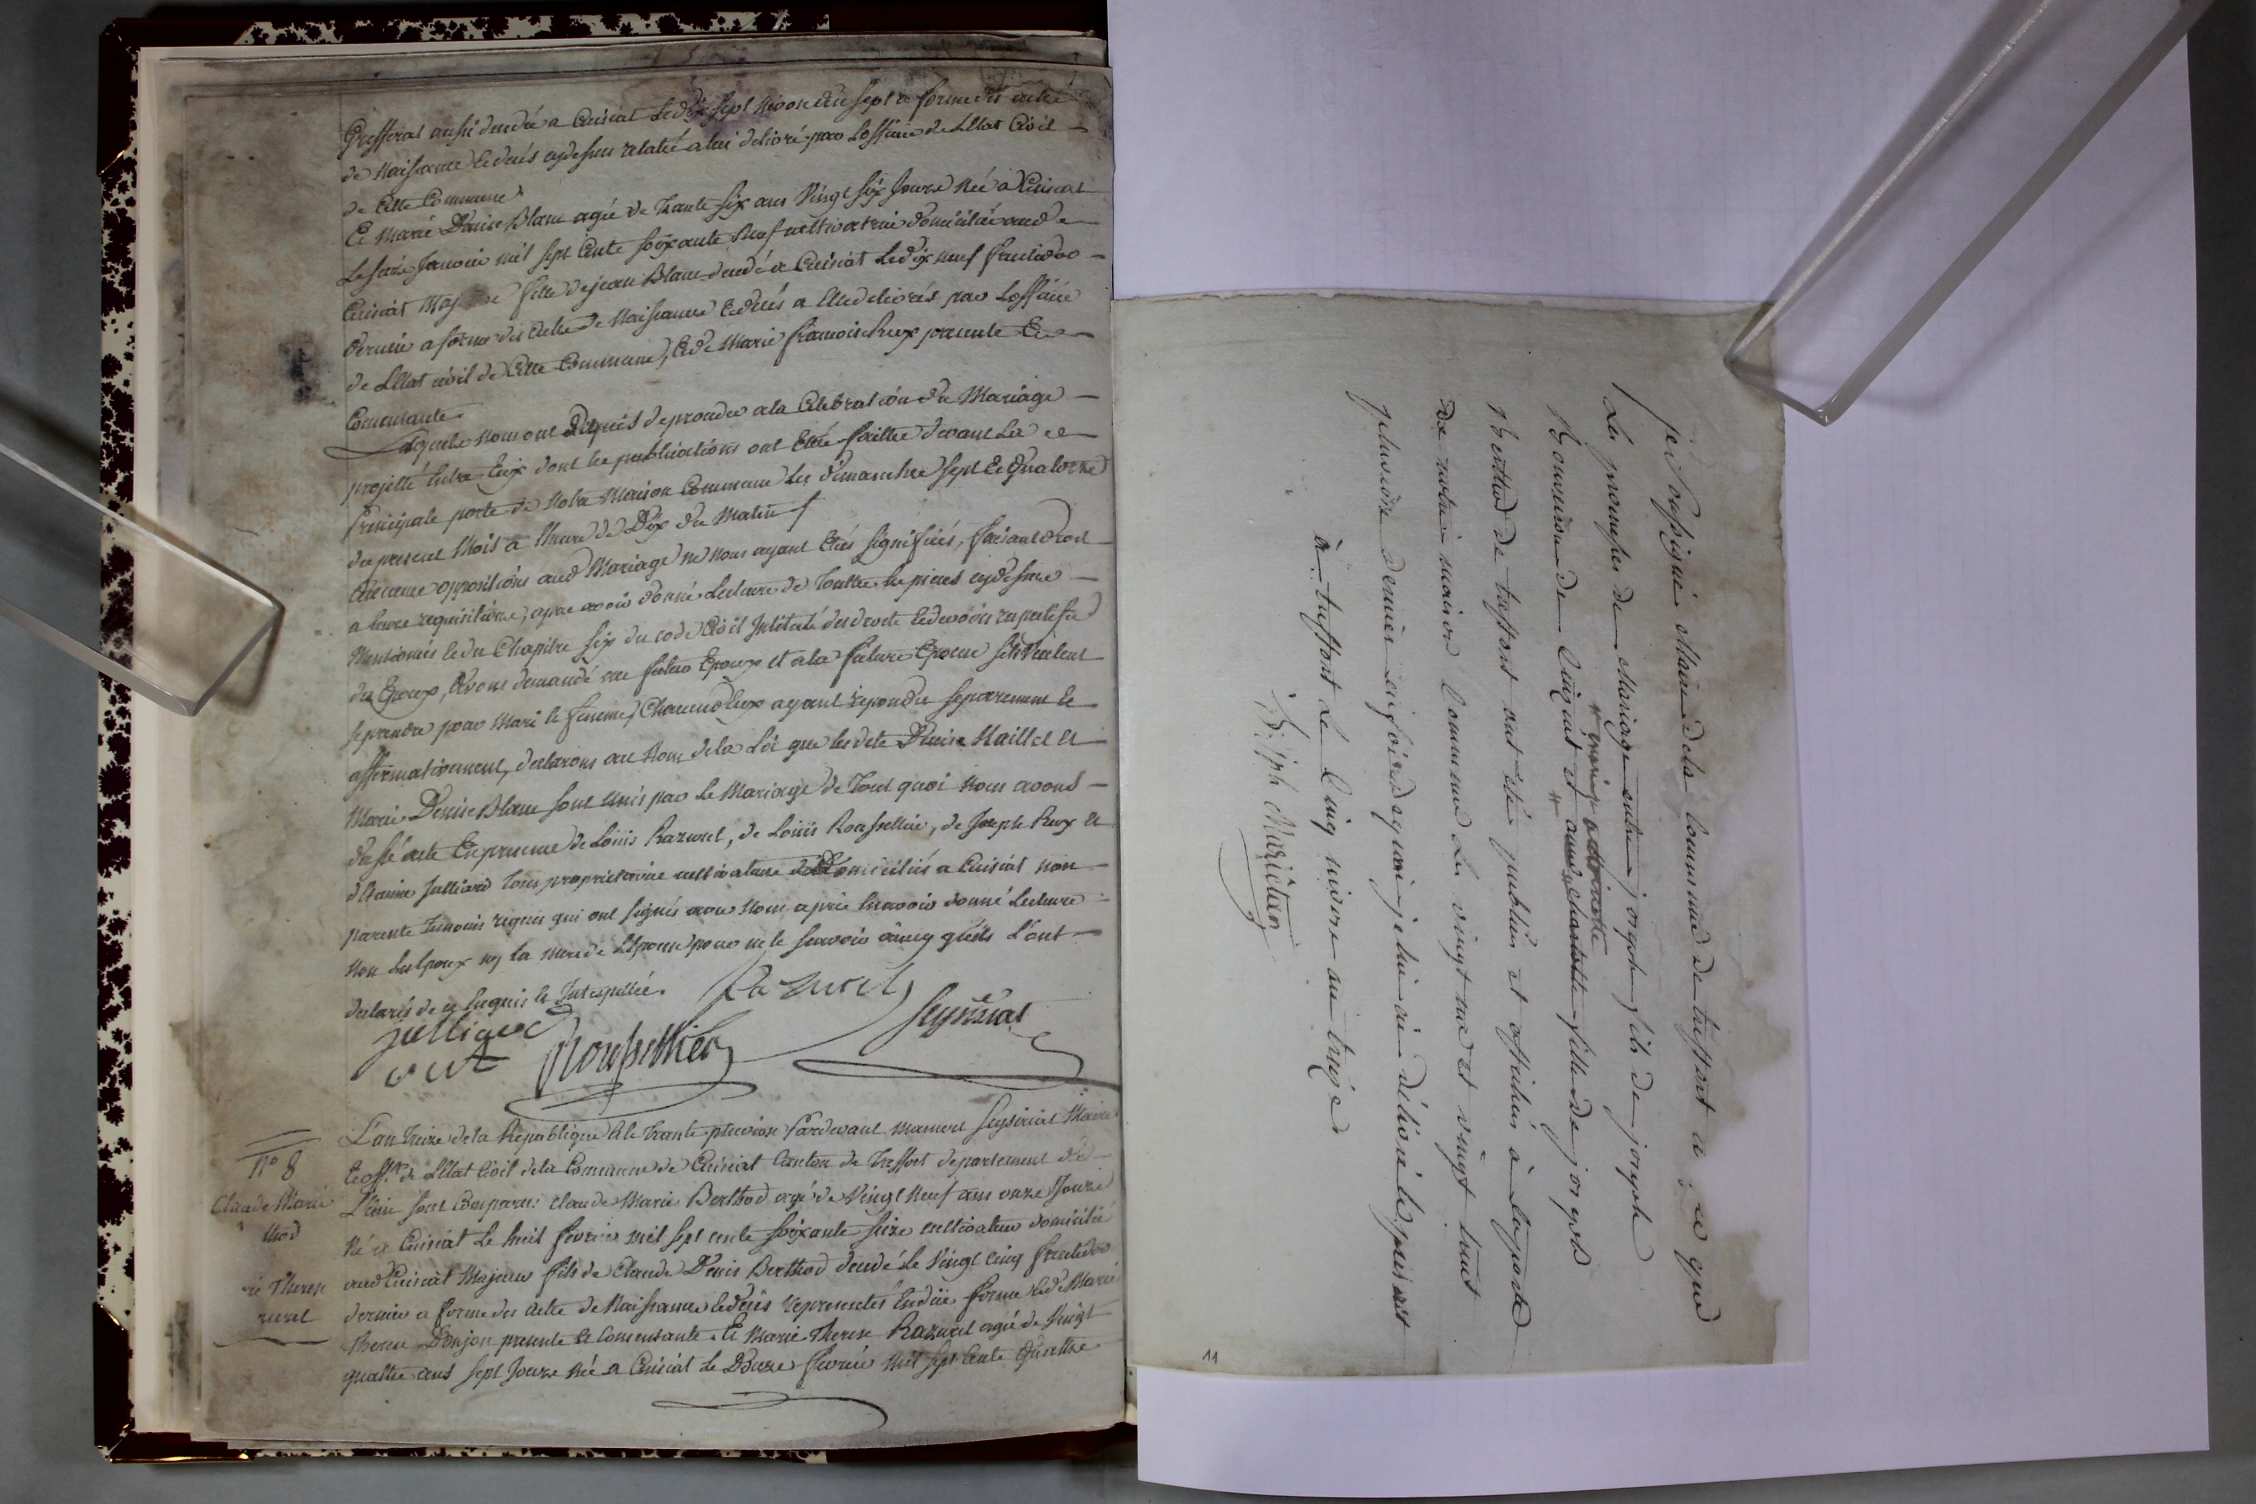 aussi décédé a Cuisiat Le dix sept Nivose an sept a forme des actes
de Naissance et décés cydessus relatés a lui delivré par Lofficier de L'Etat Civil
de Cette Commune
Et Marie Denise Blanc agée de Trente Six ans Vingt Six Jours Née a Cuisiat
Le Janvier mil Sept Cents Soixante Neuf cultivatrice domiciliée aud.
Cuisiat Majeure fille de jean Blanc decédé a Cuisiat Le dix neuf fructidor
dernier a forme des actes de Naissance et decés a Elle delivrés par Lofficier
de L'Etat civil de Cette Commune, et de Marie françoise Rux presente Et
Consentante
Lesquels nous ont Requis de proceder a la Celebration du Mariage
projetté Entre Eux dont les publications ont Etté faittes devant La
Principale porte de Notre Maison Commune Les dimanches Sept Et Quatorze
du present Mois a l'heure de Dix du Matin
Aucune oppositions aud Mariage ne nous ayant Etés Signifiés, faisant droit
a leurs requisitions, apres avoir donné Lecture de Touttes les pieces cydessus
Mentionnés et du Chapitre Six du code Civil Intitulé des droits et devoirs respectifs
des Epoux, Avons demandé au futur Epoux et a la future Epouse s'ils veulent
se prendre pour Mari et femme, Chacun d'Eux ayant repondu separement Et
affirmativement, declarons au Nom de la Loi que les dits Denis Maillet et
Marie Denise Blanc sont Unis par Le Mariage de Tout quoi Nous avons
dressé acte En presence de Louis Razurel, de Louis Roussellier, de Joseph Rux et
d'Etienne Julliard Tous proprietaires cultivateurs Domiciliés a Cuisiat non
parents Temoins requis qui ont signés avec Nous apres En avoir donné Lecture
Non Les Epoux ny la Mere de L'Epouse pour ne le Scavoir ainsy qu'ils L'ont
declarés de ce Enquis et Interpellés.
Razurel
Seyssiat
julliard
rux
Roussellier
N° 8
Claude Marie
thod
rie Therese
zurel
L'an Treize de la Republique et le Trente pluviose Pardevant Seyssiat Maire
Et off.er de L'Etat Civil de la Commune de Cuisiat Canton de Treffort departement de
L'ain sont Comparus Claude Marie Berthod agé de Vingt Neuf ans onze Jours
Né a Cuisiat Le huit fevrier mil Sept cents Soixante Seize cultivateur domicilié
aud Cuisiat Majeur fils de Claude Denis Berthod decedé Le Vingt Cinq fructidor
dernier a forme des Actes de Naissance et décés representés En due forme et de Marie
Therese Donjon presente et Consentante. Et Marie Therese Razurel agée de Vingt
quattre ans sept Jours Née a Cuisiat Le Douze fevrier Mil Sept Cents Quattre
je Soussigné Maire de la Commune de treffort a ce que
Les promesses de Mariage entre joseph fils de joseph
# marie
Bouvier de Cuisiat et # fille de joseph
Berthod de treffort ont été publiées et affichées à la porte
de notre maison Commune Les vingt une et vingt huit
pluviose dernier en foi de quoi je lui ai délivré le présent
à treffort Le Cinq nivose an treize
Joseph Mariétan
11